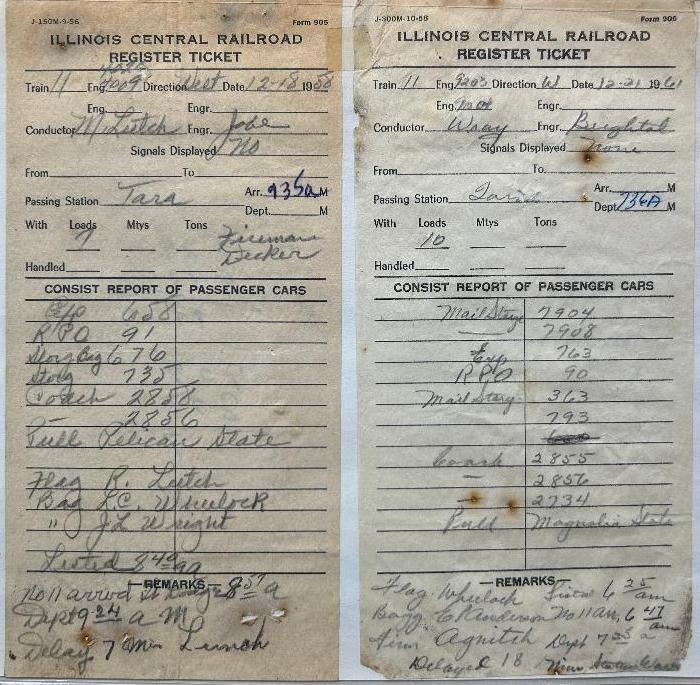 J-150M-9-56 Form 905
ILLINOIS CENTRAL RAILROAD
REGISTER TICKET
Train 11 Eng. 4009 Direction West Date 12-18 1958
Eng. Engr.
Conductor M Lutch Engr. Jobe
Signals Displayed No
From To
Passing Station Tara Arr. 935a M
Dept. M
With Loads Mtys Tons
7 Fireman
Decker
Handled
CONSIST REPORT OF PASSENGER CARS
Exp 658
RPO 91
Storg Bag 676
Storg 735
Coach 2858
— 2856
Pull Pelican State
Flag R. Lutch
Bag L.C. Wheelock
" J L Wright
Listed 8 40 a
REMARKS
No 11 arrvd Ft Dodge 8 57 a
Dept 9 24 a M
Delay 7 Mn Lunch
J-300M-10-58 Form 905
ILLINOIS CENTRAL RAILROAD
REGISTER TICKET
Train 11 Eng. 9203 Direction W Date 12-21 1961
Eng. Engr.
Conductor Wray Engr.
Signals Displayed None
From To
Passing Station Arr. M
Dept. 736A M
With Loads Mtys Tons
10
Handled
CONSIST REPORT OF PASSENGER CARS
Mail Storg 7904
— 7908
Exp 763
RPO 90
Mail Storg 363
793
Coach 2855
— 2856
— 2734
Pull Magnolia State
REMARKS
Flag Wheelock 6 25 am
Bagg E Anderson No 11 arr, 6 47 am
Firm Agnitch Dept 7 25 a
Delayed 18 Min